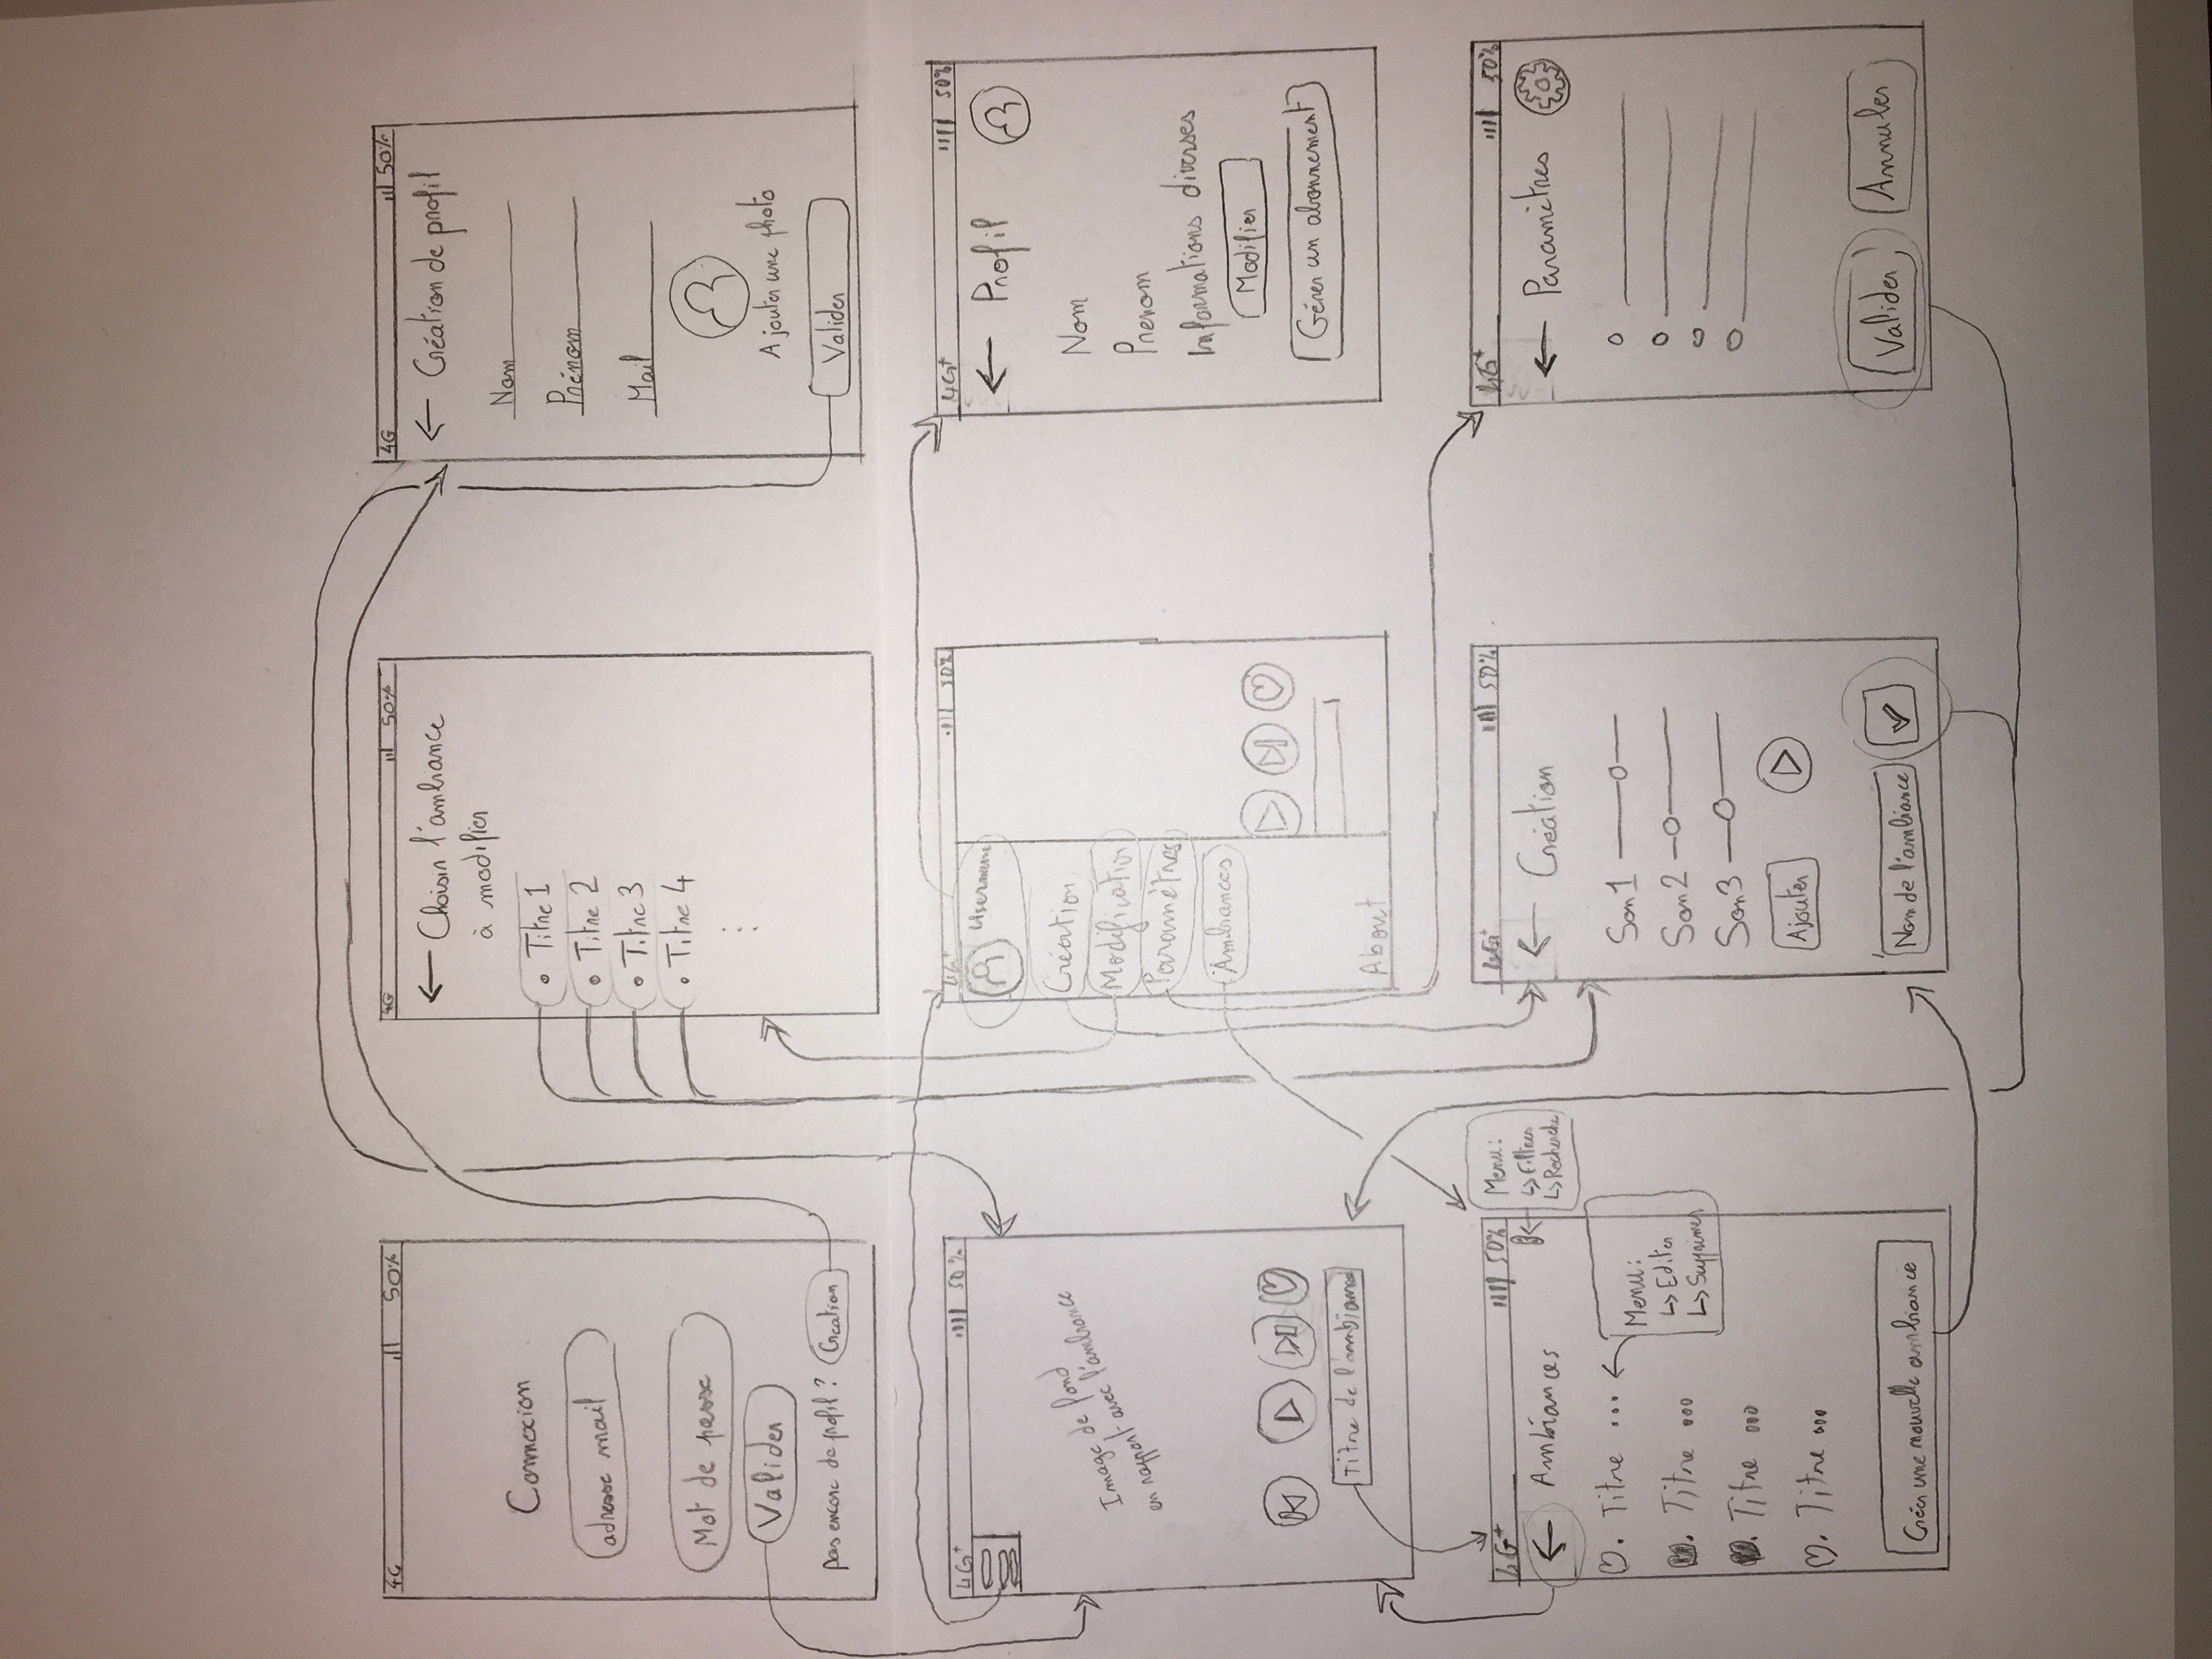 4G 50%
Connexion
adresse mail
Mot de passe
Valider
pas encore de profil ? Creation
4G 50%
← Choisir l'ambiance
à modifier
• Titre 1
• Titre 2
• Titre 3
• Titre 4
4G 50%
← Création de profil
Nom
Prénom
Mail
Ajouter une photo
Valider
4G+ 50%
Image de fond
en rapport avec l'ambiance
Titre de l'ambiance
4G+ 50%
Username
Création
Modification
Paramètres
Ambiances
About
4G+ 50%
← Profil
Nom
Prenom
Informations diverses
Modifier
Gérer un abonnement
4G+ 50%
← Ambiances
Menu:
↳ Filtres
↳ Recherche
♡. Titre ...
Menu:
↳ Editer
↳ Supprimer
♥. Titre ...
♥. Titre ...
♡. Titre ...
Créer une nouvelle ambiance
4G+ 50%
← Création
Son 1
Son 2
Son 3
Ajouter
Nom de l'ambiance
4G+ 50%
← Paramètres
Valider
Annuler